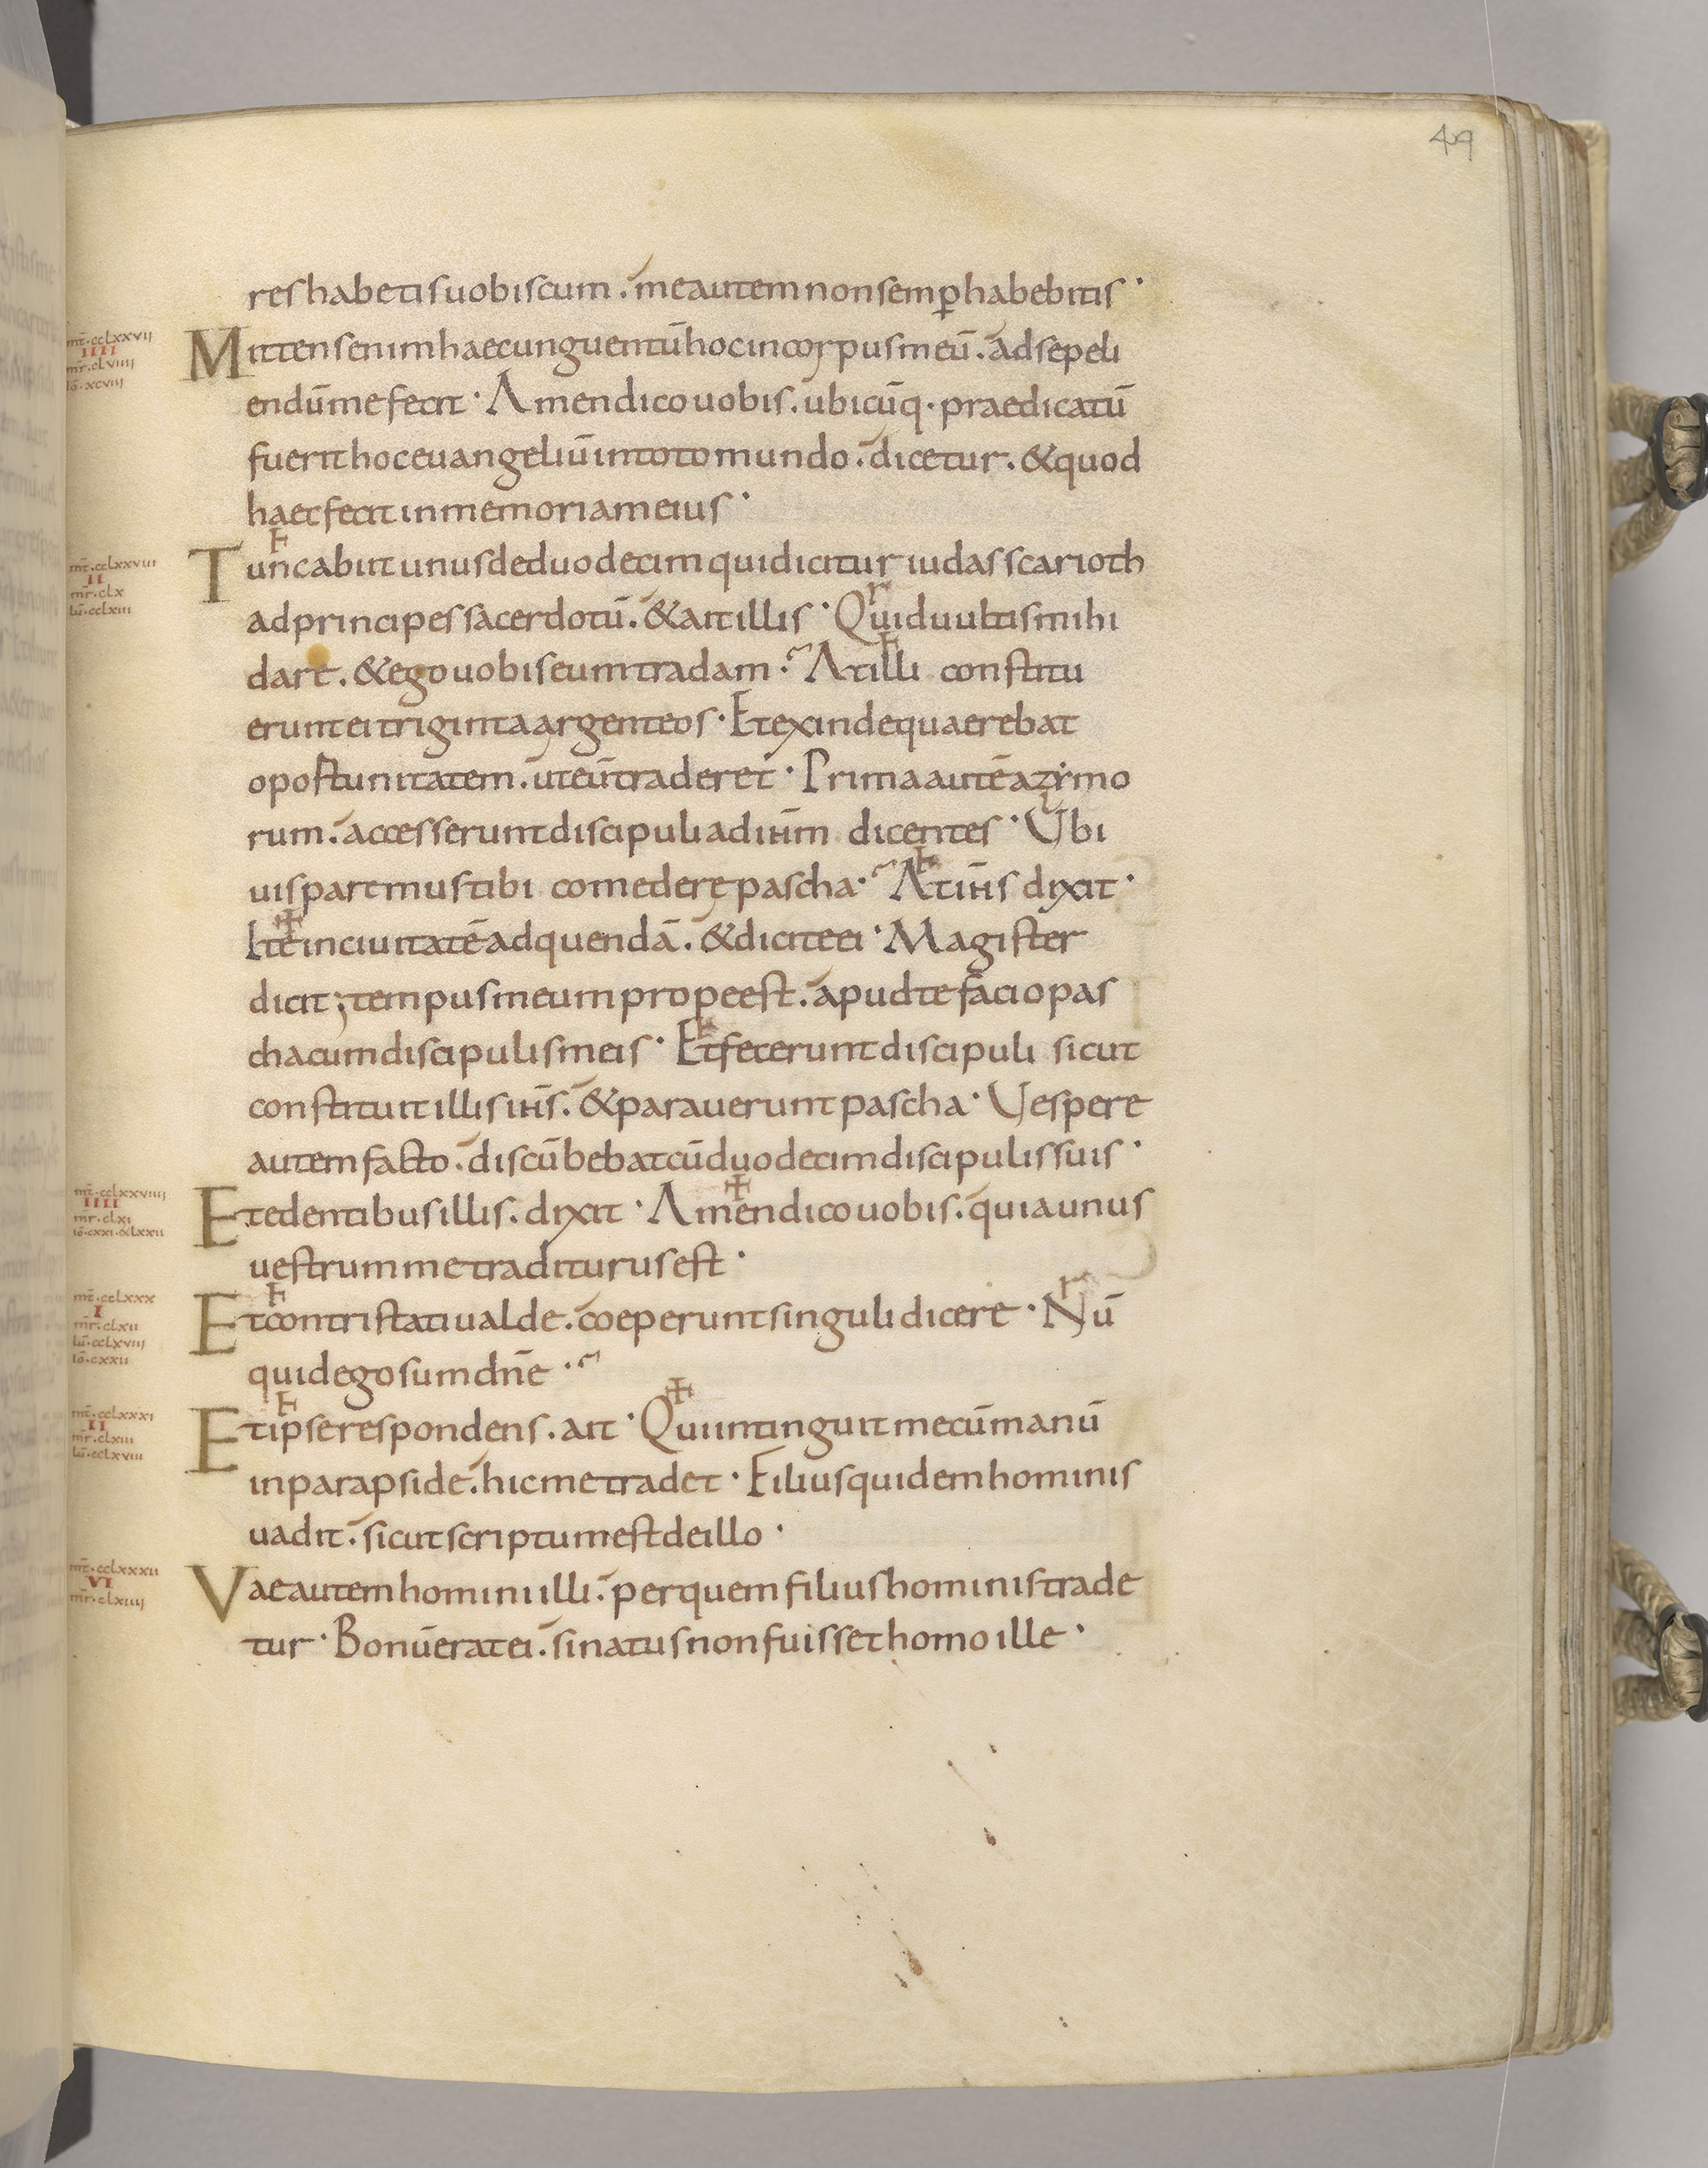 49
res habetis uobiscum. me autem non semp̲ habebitis·
mt̄·cclxxvii
IIII
mr̄·clviiii
iō·xcviii
Mittens enim haec unguentū hoc in corpus meū. ad sepeli
endū me fecit· Amen dico uobis. ubicūq· praedicatū
fuerit hoc euangeliū in toto mundo. dicetur. & quod
haec fecit in memoriam eius·
mt̄·cclxxviii
II
mr̄·clx
lū·cclxiii
Tunc abiit unus de duodecim qui dicitur iudas scarioth
ad principes sacerdotū. & ait illis· Quid uultis mihi
dare. & ego uobis eum tradam· At illi constitu
erunt ei triginta argenteos· Et exinde quaerebat
oportunitatem. ut eū traderet· Prima autē azẏmo
rum. accesserunt discipuli ad ihm̄ dicentes· Ubi
uis paremus tibi comedere pascha· At ihs̄ dixit·
Ite in ciuitatē ad quendā. & dicite ei· Magister
dicit; tempus meum prope est. apud te facio pas
cha cum discipulis meis· Et fecerunt discipuli sicut
constituit illis ihs̄. & parauerunt pascha· Uespere
autem facto. discūbebat cū duodecim discipulis suis·
mt̄·cclxxviiii
IIII
mr̄·clxi
iō·cxxi·&lxxii
Et edentibus illis. dixit· Amen dico uobis. quia unus
uestrum me traditurus est·
mt̄·cclxxx
I
mr̄·clxii
lū·cclxviii
iō·cxxii
Et contristati ualde. coeperunt singuli dicere· Nū
quid ego sum dn̄e·
mt̄·cclxxxi
II
mr̄·clxiii
lū·cclxviii
Et ipse respondens. ait· Qui intinguit mecū manū
in parapside. hic me tradet· Filius quidem hominis
uadit. sicut scriptum est de illo·
mt̄·cclxxxii
VI
mr̄·clxiiii
Vae autem homini illi. per quem filius hominis trade
tur· Bonū erat ei. si natus non fuisset homo ille·